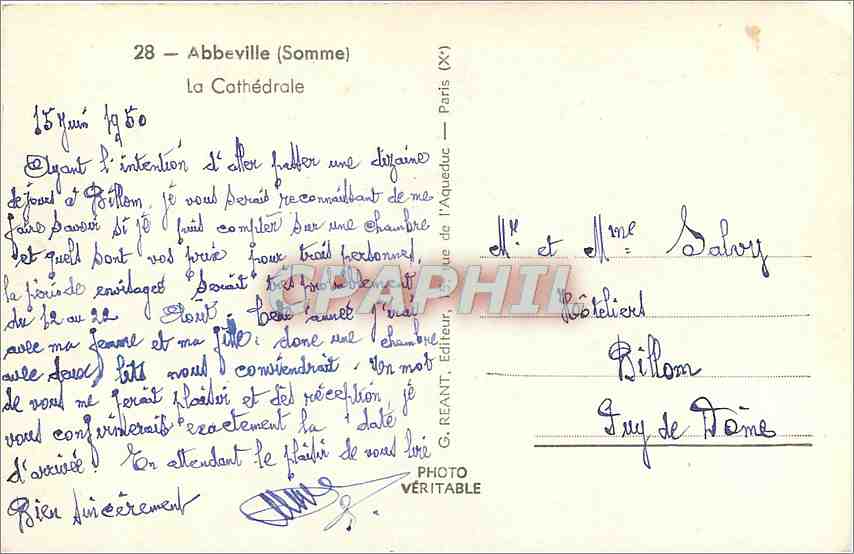 28 — Abbeville (Somme)
La Cathédrale
15 Juin 1950
Ayant l'intention d'aller passer une dizaine
de jours à Billom, je vous serais reconnaissant de me
faire savoir si je puis compter sur une chambre
et quels sont vos prix pour trois personnes,
la période envisagée serait très probablement
du 12 au 22 Août. Cette année j'irai
avec ma femme et ma fille; donc une chambre
avec deux lits nous conviendrait. Un mot
de vous me ferait plaisir et dès réception, je
vous confirmerais exactement la date
d'arrivée. En attendant le plaisir de vous lire
Bien sincèrement
G. REANT, Editeur, rue de l'Aqueduc — Paris (Xe)
PHOTO
VÉRITABLE
CPAPHIL
Mr. et Mme Salvy
Hôteliers
Billom
Puy de Dôme